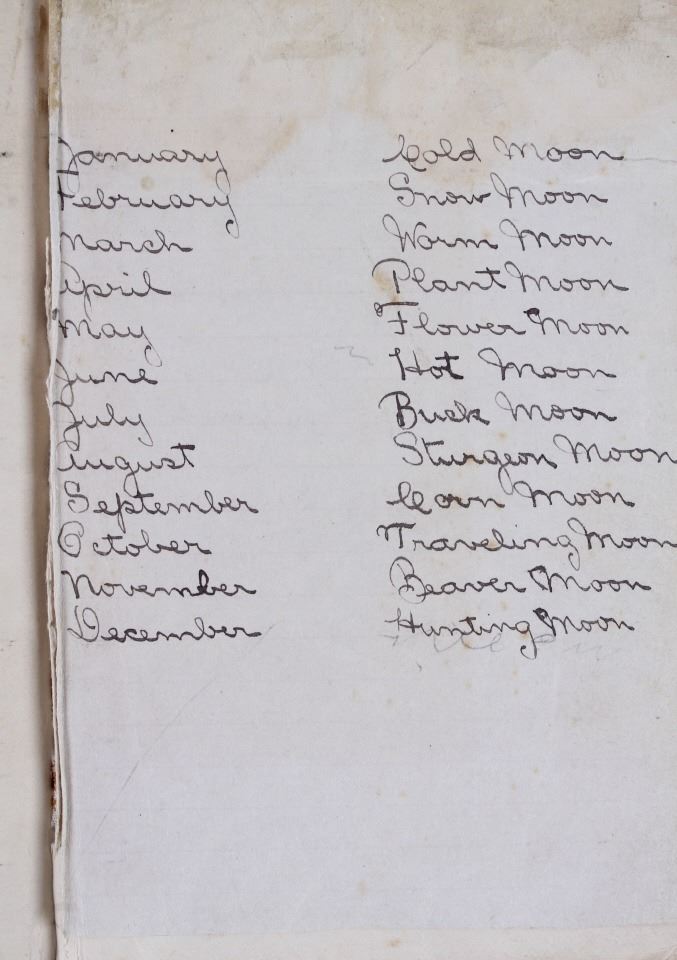 January Cold Moon
February Snow Moon
March Worm Moon
April Plant Moon
May Flower Moon
June Hot Moon
July Buck Moon
August Sturgeon Moon
September Corn Moon
October Traveling Moon
November Beaver Moon
December Hunting Moon